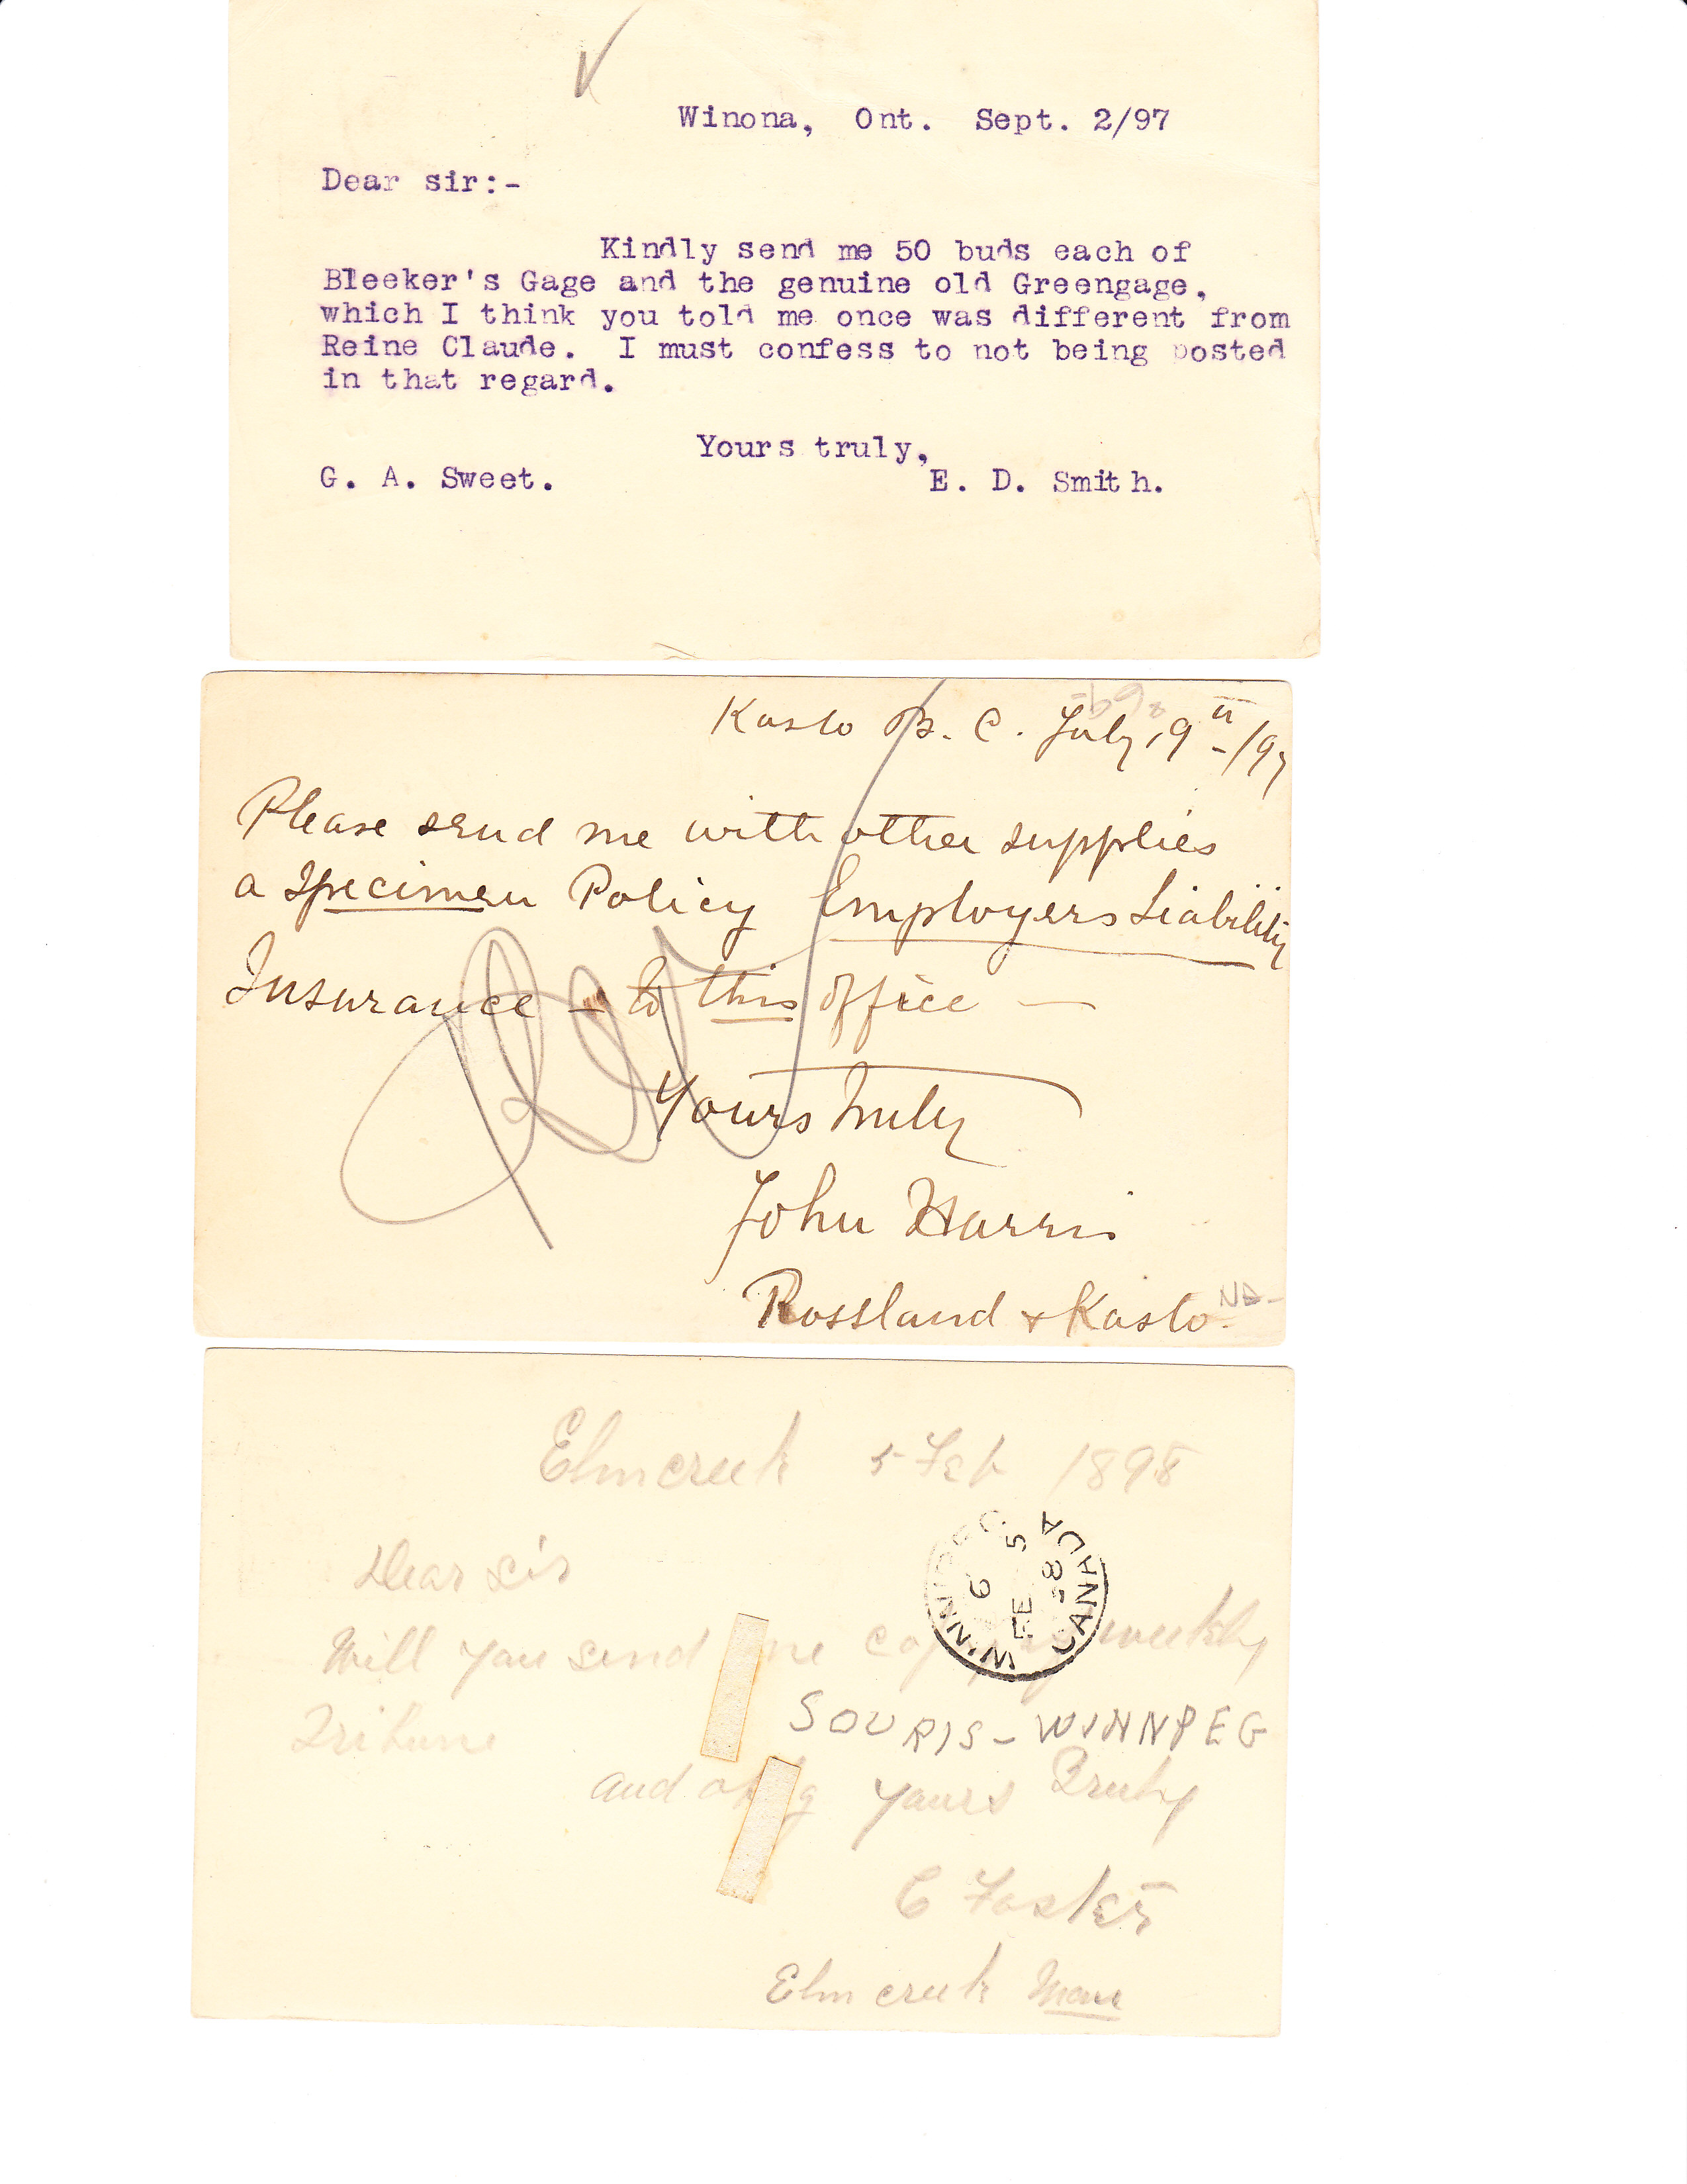 Winona, Ont. Sept. 2/97
Dear sir:-
Kindly send me 50 buds each of
Bleeker's Gage and the genuine old Greengage,
which I think you told me once was different from
Reine Claude. I must confess to not being posted
in that regard.
Yours truly,
G. A. Sweet. E. D. Smith.
Kaslo B. C. July 19th/97
Please send me with other supplies
a Specimen Policy Employers Liability
Insurance — to this office —
Yours Truly
John Harris
Rossland & Kaslo.
Elmcreek 5 Feb 1898
Dear Sir
Will you send me copy weekly
Tribune
SOURIS - WINNPEG
and oblg Yours Truly
C Foster
Elm creek Man
WINNIPEG
6
FE 5
98
CANADA